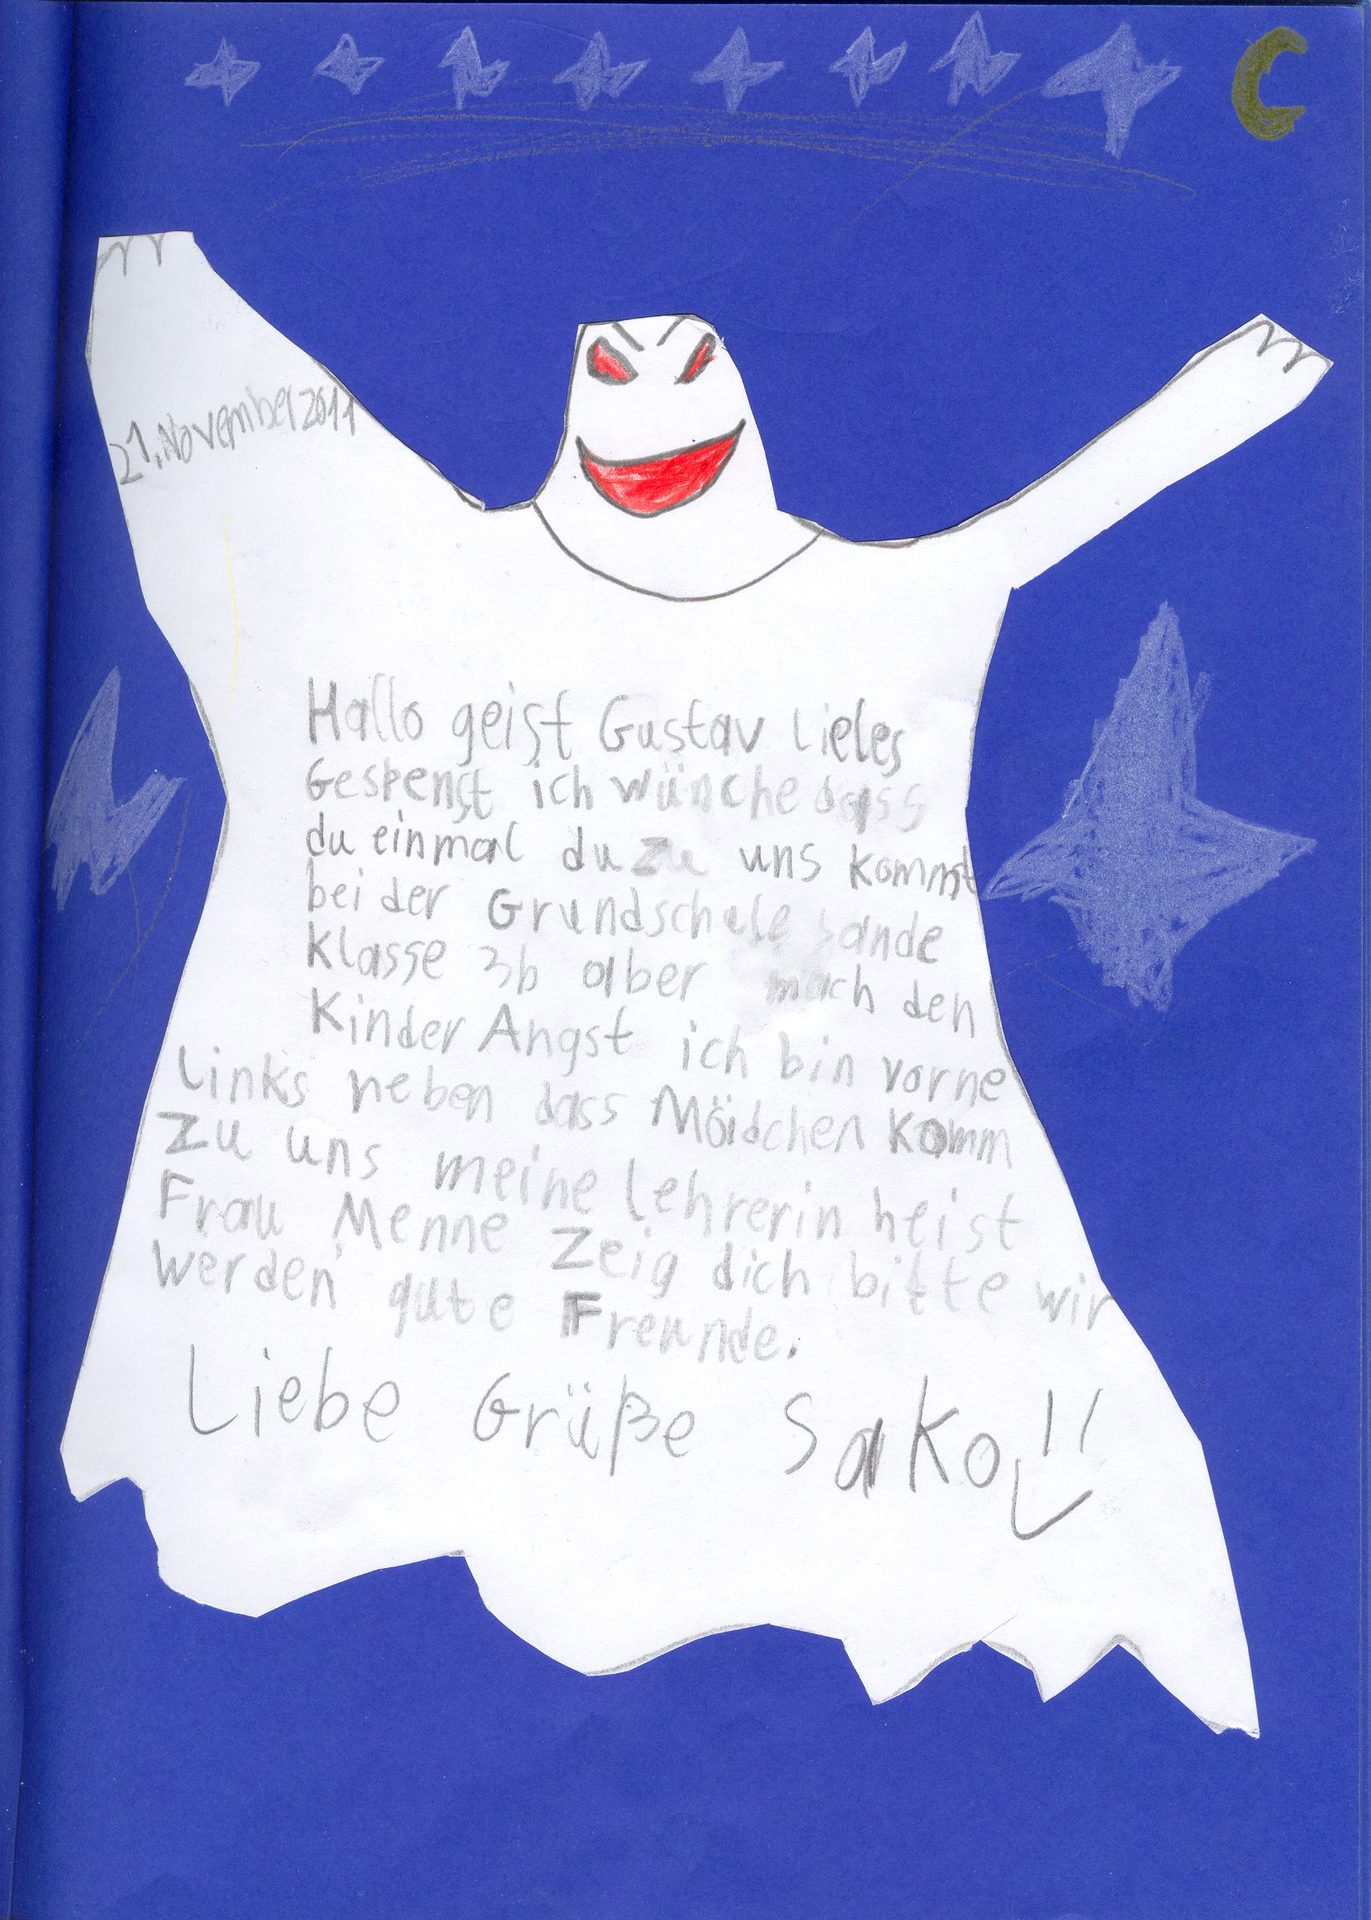 21. November 2011
Hallo geist Gustav Lieles
Gespenst ich wünche dass
du einmal du zu uns kommst
bei der Grundschule Sande
Klasse 3b aber mach den
Kinder Angst ich bin vorne
Links neben dass Mädchen Komm
Zu uns meine Lehrerin heist
Frau Menne Zeig dich bitte wir
werden gute Freunde.
Liebe Grüße Sako!!